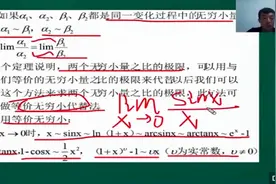 如果α₁, α₂, β₁, β₂都是同一变化过程中的无穷小量
α₁~α₂, β₁~β₂
lim α₁/α₂ = lim β₁/β₂
个定理说明，两个无穷小量之比的极限，可以用与
们等价的无穷小量之比的极限来代替以后我们可以
这个方法来求两个无穷小量之比的极限，此方法可
做等价无穷小代替法
用等价无穷小：
lim sinx
x→0 x
x→0时，x~sinx~ln(1+x)~arcsinx~arctanx~eˣ-1
tanx,1-cosx~1/2x², (1+x)ᵘ-1~υx (υ为实常数，υ≠0)